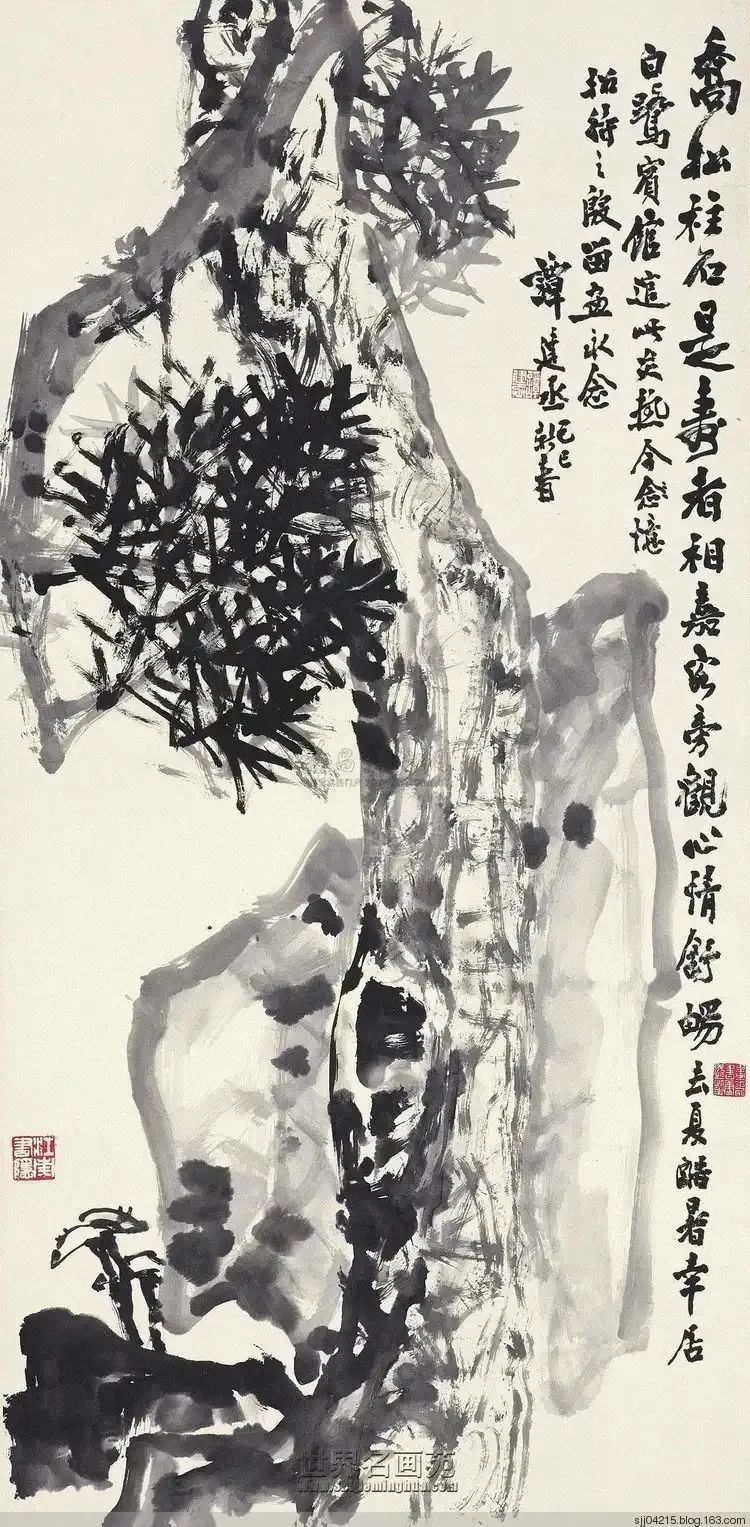 喬松柱石是壽者相嘉客旁觀心情舒暢去夏酷暑幸居
白鷺賓館逭此炎熱今念憶
招待之殷留画永念
譚建丞己巳新春
世界名画苑
sjj04215.blog.163.com